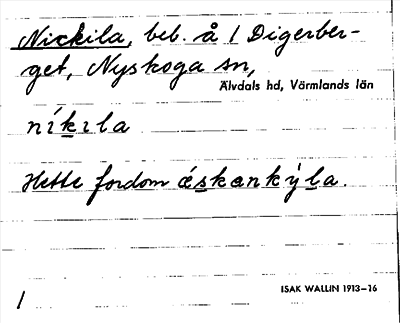 Nickila, beb. å / Digerber-
get, Nyskoga sn,
Älvdals hd, Värmlands län
níkıla
Hette fordom éskankýla.
ISAK WALLIN 1913–16
1